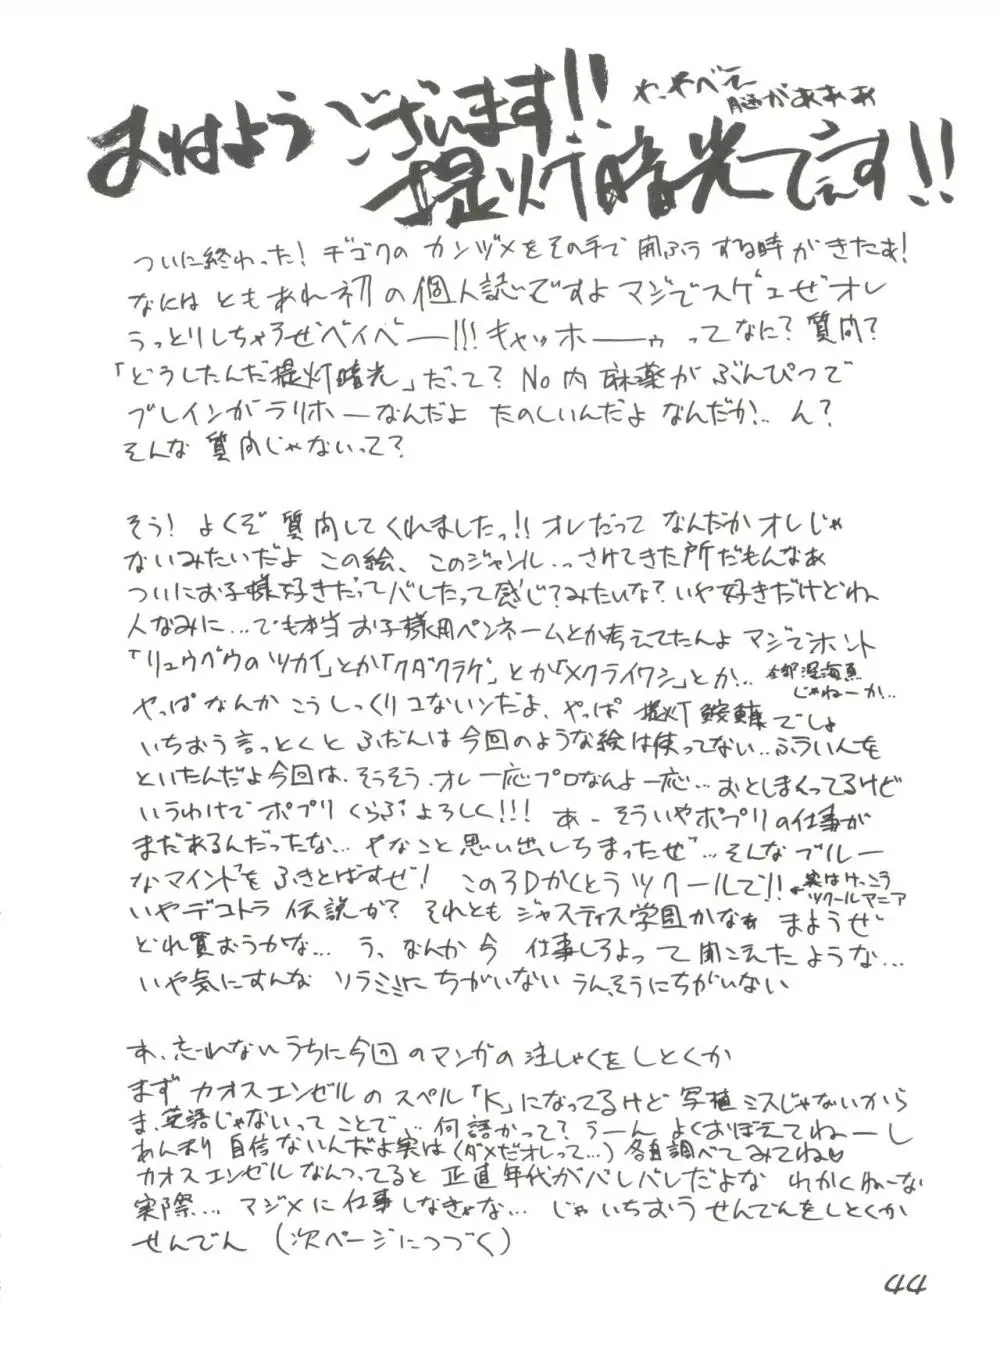 おはようございます!!
わ、やべえ
脳がああぁ
提灯暗光でぇす!!
ついに終わった! ヂゴクのカンヅメをその手で開ふうする時がきたぁ!
なにはともあれ初の個人誌ですよ マジでスゲェぜオレ
うっとりしちゃうぜベイベー!!! キャッホーゥ ってなに? 質問?
「どうしたんだ提灯暗光」だって? No内麻薬がぶんぴつで
ブレインがラリホーなんだよ たのしいんだよ なんだか!.. ん?
そんな質問じゃないって?
そう! よくぞ質問してくれましたっ!! オレだってなんだかオレじゃ
ないみたいだよ この絵、このジャンル..さけてきた所だもんなあ
ついにお子様好きだってバレたって感じ?みたいな? いや好きだけどね
人なみに...でも本当お子様用ペンネームとか考えてたんよ マジでホント
「リュウグウのツカイ」とか「クダクラゲ」とか「メクライワシ」とか..
全部深海魚
じゃねーか..
やっぱなんかこうしっくりコないンだよ、やっぱ 提灯鮟鱇でしょ
いちおう言っとくと ふだんは今回のような絵は使ってない..ふういんを
といたんだよ今回は、そうそう、オレ一応プロなんよ一応... おとしまくってるけど
いうわけでポプリくらぶよろしく!!! あーそういやポプリの仕事が
まだあるんだったな... ヤなこと思い出しちまったぜ...そんなブルー
なマインドをふきとばすぜ! この3Dかくとうツクールで!!
実はけっこう
ツクールマニア
いやデコトラ伝説が? それともジャスティス学園かなぁ まようぜ
どれ買おうかな... う、なんか今 仕事しろよって聞こえたような...
いや気にすんな ソラミミにちがいない うん、そうにちがいない
オ、忘れないうちに今回のマンガの注しゃくをしとくか
まずカオスエンゼルのスペル「K」になってるけど写植ミスじゃないから
ま、英語じゃないってことで... 何語かって? うーん よくおぼえてねーし
あんまり自信ないんだよ実は(ダメだオレって...) 各自調べてみてね♡
カオスエンゼルなんつってると 正直年代がバレバレだよな わかくねーな
実際... マジメに仕事しなきゃな... じゃ いちおうせんでんをしとくか
せんでん (次ページにつづく)
44